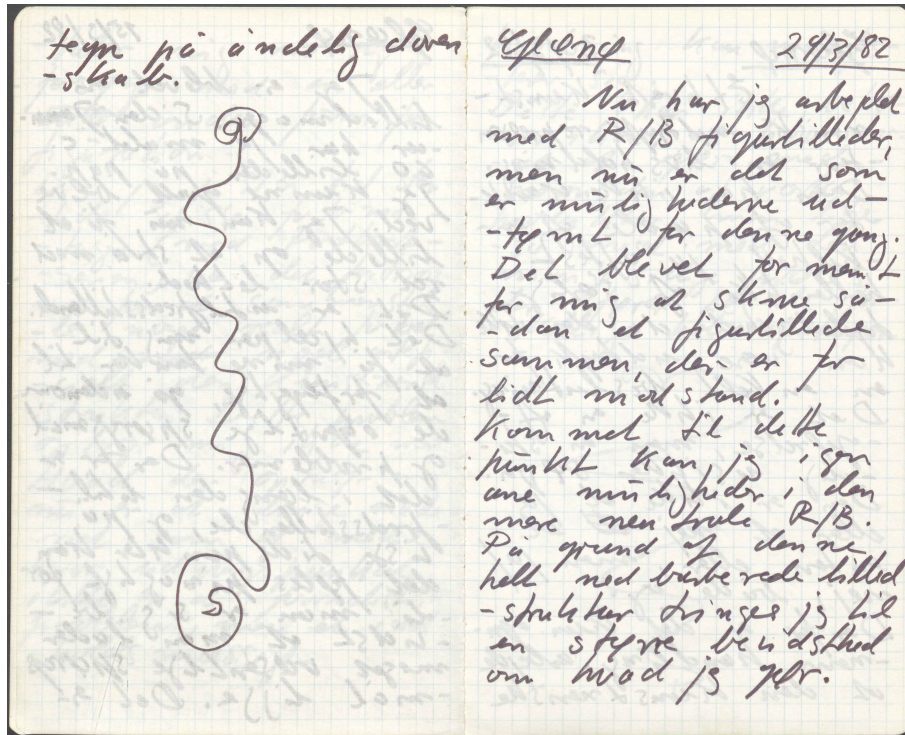 tegn på åndelig doven
-skab.
Gland 29/3/82
Nu har jeg arbejdet
med R/B figurbilleder,
men nu er det som
er mulighederne ud-
-tømt for denne gang.
Det blevet for nemt
for mig at skrue så-
-dan et figurbillede
sammen, der er for
lidt modstand.
Kommet til dette
punkt kan jeg igen
ane muligheder i den
mere neutrale R/B.
På grund af denne
helt nedbarberede billed
-struktur tvinges jeg til
en større bevidsthed
om hvad jeg gør.